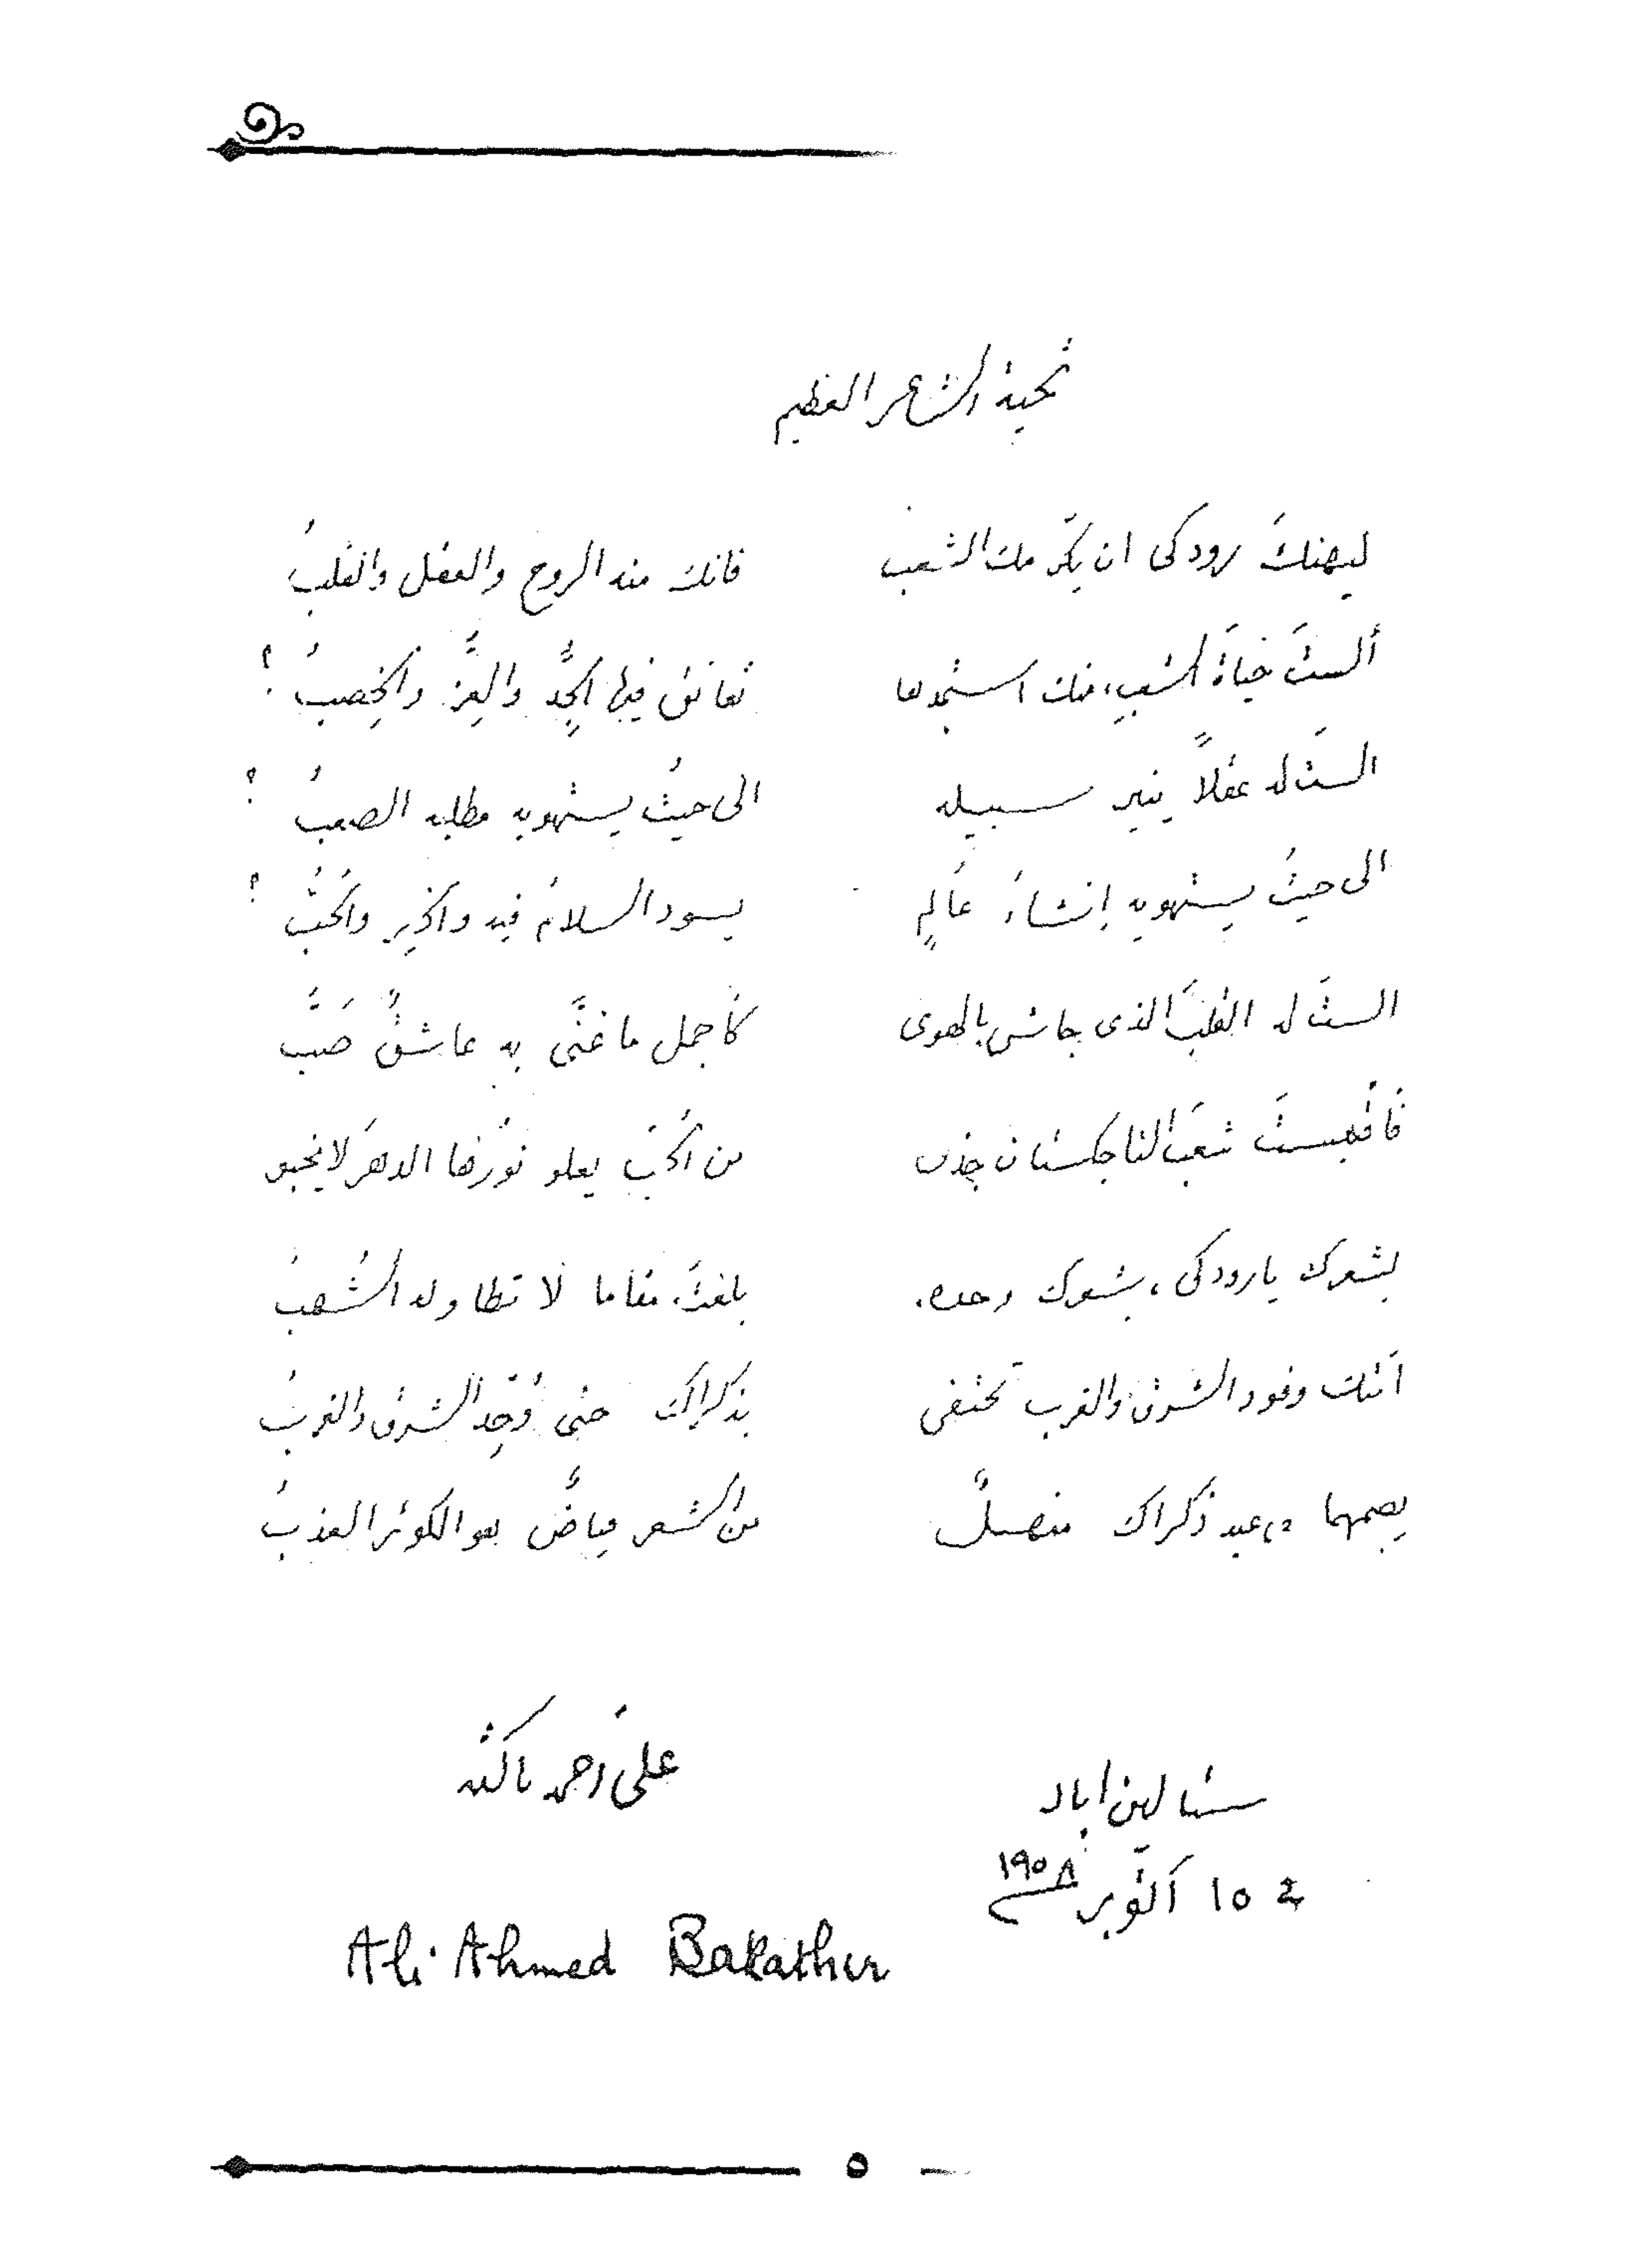 تحية الشاعر العظيم
ليهنكَ رودكى ان يكرّمك الشعب فانك منه الروح والعقل والقلبُ
ألستَ حياةَ الشعبِ، منك استمدها تعانق فيها الجِدُّ والعِزُّ والخِصبُ ؟
الستَ له عقلاً ينير سبيله الى حيثُ يستهويه مطلبه الصعبُ ؟
الى حيثُ يستهويه إنشاءُ عالمٍ يسود السلامُ فيه والخير والحُبُّ ؟
الستَ له القلبَ الذى جاش بالهوى كأجمل ما غنَّى به عاشقٌ صَبُّ
فأقبستَ شعبَ التاجكستان جذوة من الحُبّ يعلو نورُها الدهرَ لا يخبو
بشعرك يا رودكى، بشعرك وحده، بلغتَ مقاما لا تطاوله الشُهبُ
أتتك وفود الشرق والغرب تحتفى بذكراكَ حتى وُحِّد الشرق والغربُ
يضمهما فى عيد ذكراك منهلٌ من الشعر فياضٌ هو الكوثر العذبُ
على أحمد باكثير
ستالين أباد
فى ١٥ أكتوبر ١٩٥٨
Ali Ahmed Bakathir
٥